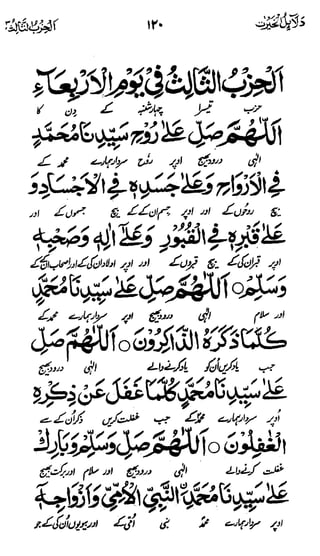 دلائل الخیرت ۱۲۰ الحزب الثالث
اَلْحِزْبُ الثَّالِثُ فِيْ يَوْمِ الْاَرْبِعَآءِ
حزب تیسرا چہارشنبہ کے دن کا
اَللّٰهُمَّ صَلِّ عَلٰى رُوْحِ سَيِّدِنَا مُحَمَّدٍ
الٰہی درود بھیج اوپر رُوح سردار ہمارے محمد کے
فِي الْاَرْوَاحِ وَعَلٰى جَسَدِهٖ فِي الْاَجْسَادِ وَ
بیچ روحوں کے اور اوپر جسم ان کے کے بیچ جسموں کے اور
عَلٰى قَبْرِهٖ فِي الْقُبُوْرِ وَعَلٰى اٰلِهٖ وَصَحْبِهٖ
اوپر قبر ان کی کے بیچ قبروں کے اور اوپر اولاد ان کی کے اور اصحاب ان کے کے
وَسَلِّمْ ○ اَللّٰهُمَّ صَلِّ عَلٰى سَيِّدِنَا مُحَمَّدٍ
اور سلام الٰہی درود بھیج اوپر سردار ہمارے محمد کے
كُلَّمَا ذَكَرَهُ الذَّاكِرُوْنَ ○ اَللّٰهُمَّ صَلِّ
جب یاد کریں اُن کو یاد کرنے والے الٰہی درود بھیج
عَلٰى سَيِّدِنَا مُحَمَّدٍ كُلَّمَا غَفَلَ عَنْ ذِكْرِهِ
اوپر سردار ہمارے محمد کے جب غفلت کریں ذکر ان کے سے
الْغٰفِلُوْنَ ○ اَللّٰهُمَّ صَلِّ وَسَلِّمْ وَبَارِكْ
غفلت کرنے والے الٰہی درود اور سلام اور برکت بھیج
عَلٰى سَيِّدِنَا مُحَمَّدِ النَّبِيِّ الْاُمِّيِّ وَاَزْوَاجِهٖٓ
اوپر سردار ہمارے محمد نبی اُمّی کے اور بیویوں اُن کی کے جو